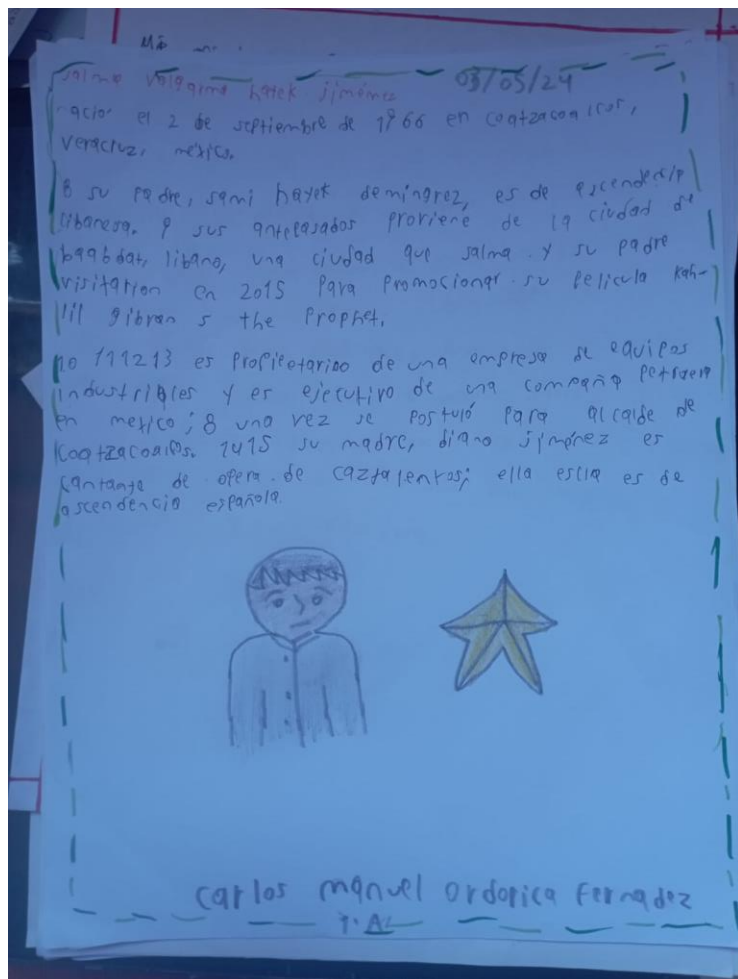 salma valgarma hatek jimenez 03/05/24
nacio el 2 de septiembre de 1966 en coatzacoalcos,
veracruz, mexico.
8 su padre, sami hayek demingrez, es de
libanesa. 9 sus antepasados proviene de la ciudad de
baabdat, libano, una ciudad que salma y su padre
visitarion en 2015 para promocionar su pelicula kah-
lil gibran s the prophet.
10 111213 es de una empresa de equipos
industriales y es ejecutivo de una compañia
en mexico; 8 una vez se postuló para alcalde de
coatzacoalcos. 1415 su madre, diano jiménez es
cantante de opera de ella es de
ascendencia española.
carlos manuel ordorica fernadez